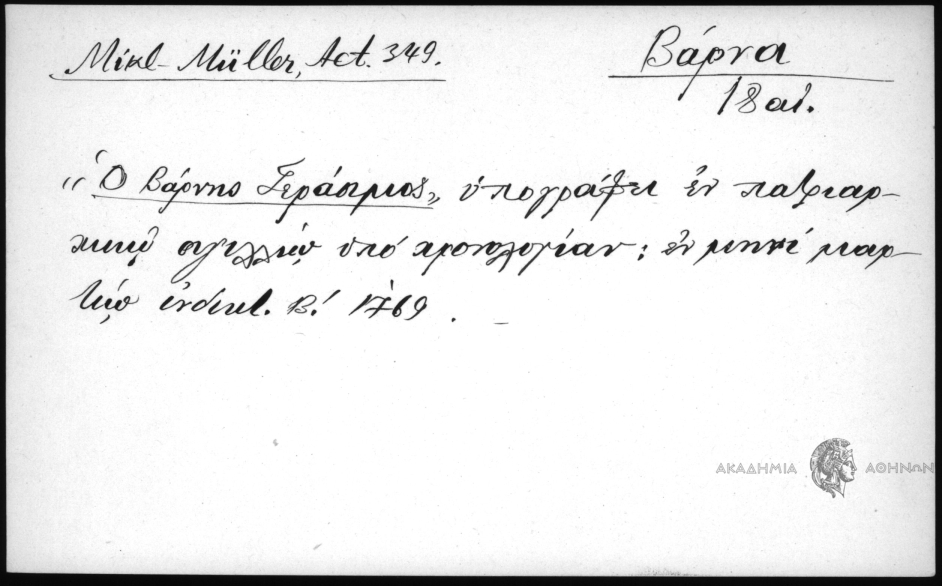 Mikl-Müller, Act. 349.
Βάρνα
18 αἰ.
"Ὁ Βάρνης Γεράσιμος„ ὑπογράφει ἐν πατριαρ-
χικῷ σιγιλλίῳ ὑπό χρονολογίαν: ἐν μηνί μαρ-
τίῳ ἰνδικτ. Β! 1769.
ΑΚΑΔΗΜΙΑ ΑΘΗΝΩΝ